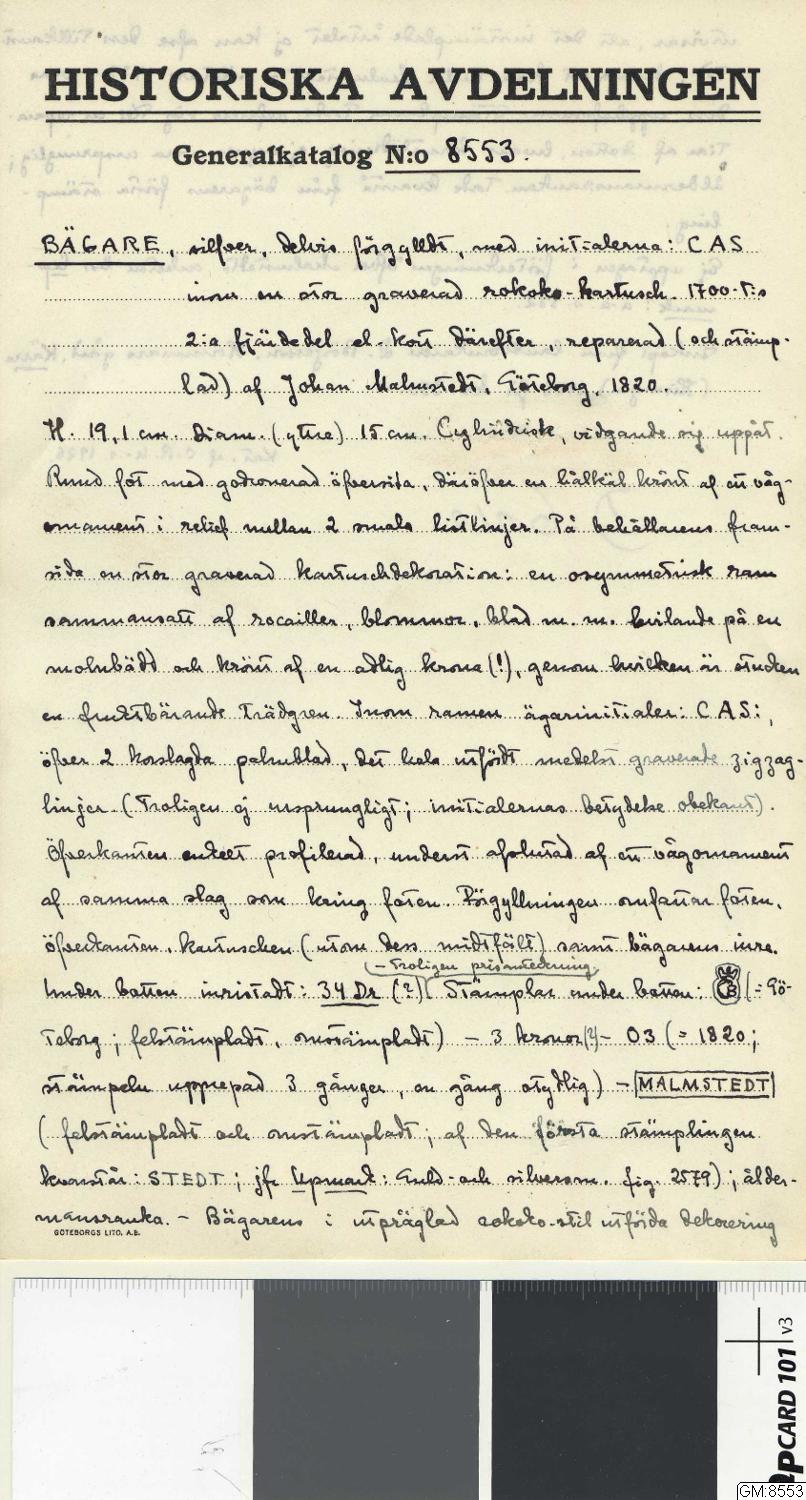 HISTORISKA AVDELNINGEN
Generalkatalog N:o 8553.
BÄGARE, silfver, delvis förgylldt, med initialerna: CAS
inom en stor graverad rokoko-kartusch. 1700-t:s
2:a fjärdedel el. kort därefter, reparerad (och stämp-
lad) af Johan Malmstedt, Göteborg, 1820.
H. 19,1 cm. Diam. (yttre) 15 cm. Cylindrisk, vidgande sig uppåt.
Rund fot med godronerad öfversida, däröfver en hålkäl krönt af ett våg-
ornament i relief mellan 2 smala listlinjer. På behållarens fram-
sida en stor graverad kartuschdekoration: en osymmetrisk ram
sammansatt af rocailler, blommor, blad m. m. hvilande på en
molnbädd och krönt af en adlig krona (!), genom hvilken är stucken
en fruktbärande trädgren. Inom ramen ägarinitialer: CAS:,
öfver 2 korslagda palmblad, det hela utfördt medelst graverade zigzag-
linjer (troligen ej ursprungligt; initialernas betydelse obekant).
Öfverkanten enkelt profilerad, underst afslutad af ett vågornament
af samma slag som kring foten. Förgyllningen omfattar foten,
öfverkanten, kartuschen (utom dess midtfält) samt bägarens inre.
(– troligen prisanteckning)
Under botten inristadt: 34 Dr (?) Stämplar under botten: GB (= Gö-
teborg; felstämpladt, omstämpladt) – 3 kronor (?) – O3 (= 1820;
stämpeln upprepad 3 gånger, en gång otydlig) – MALMSTEDT
(felstämpladt och omstämpladt; af den första stämplingen
kvarstår: STEDT; jfr Upmark: Guld- och silversm. fig. 2579); ålder-
mansranka. – Bägarens i utpräglad rokoko-stil utförda dekorering
GÖTEBORGS LITO. A.B.
CARD 101 v3
GM:8553